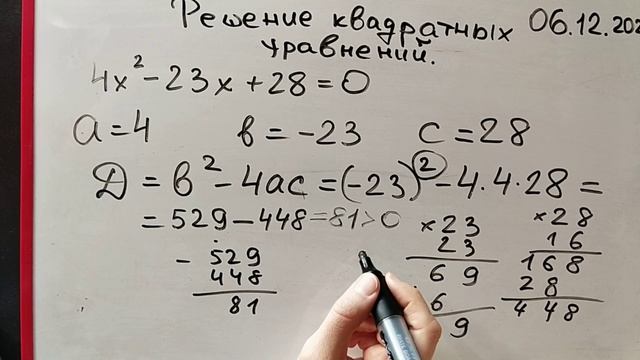 Решение квадратных 06.12.202
уравнений.
4x² - 23x + 28 = 0
a = 4 в = -23 c = 28
Д = в² - 4ac = (-23)² - 4·4·28 =
= 529 - 448 = 81 > 0
- 529
448
81
× 23
23
69
6
9
× 28
16
168
28
448